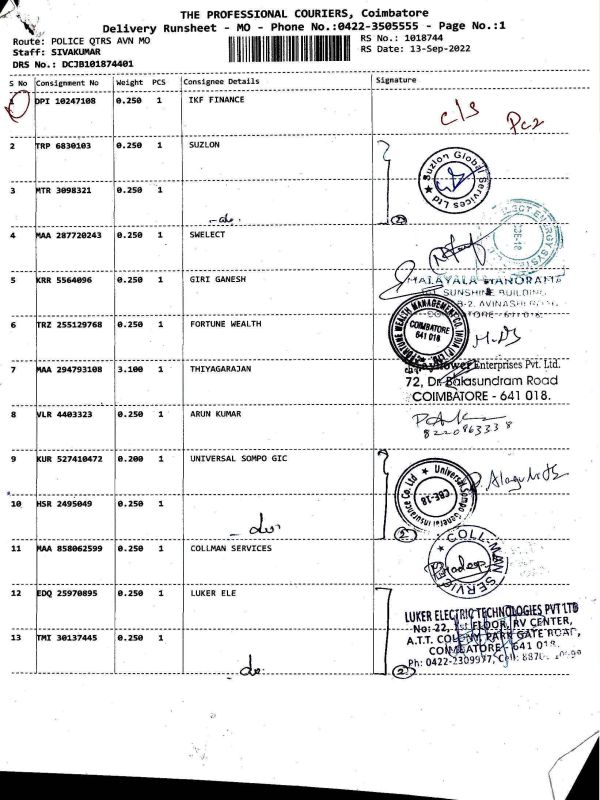 THE PROFESSIONAL COURIERS, Coimbatore
Delivery Runsheet - MO - Phone No.:0422-3505555 - Page No.:1
Route: POLICE QTRS AVN MO
RS No.: 1018744
Staff: SIVAKUMAR
RS Date: 13-Sep-2022
DRS No.: DCJB101874401
S No Consignment No Weight PCS Consignee Details Signature
1 DPI 10247108 0.250 1 IKF FINANCE
c/s
2 TRP 6830103 0.250 1 SUZLON
Suzlon Global Services Ltd
3 MTR 3098321 0.250 1
-do-
2
4 MAA 287720243 0.250 1 SWELECT
5 KRR 5564096 0.250 1 GIRI GANESH
MALAYALA MANORAMA
SUNSHINE BUILDING
6 TRZ 255129768 0.250 1 FORTUNE WEALTH
FORTUNE WEALTH MANAGEMENT CO. INDIA (P) LTD
COIMBATORE
641 018
7 MAA 294793108 3.100 1 THIYAGARAJAN
Enterprises Pvt. Ltd.
72, Dr. Balasundram Road
COIMBATORE - 641 018.
8 VLR 4403323 0.250 1 ARUN KUMAR
9 KUR 527410472 0.200 1 UNIVERSAL SOMPO GIC
Universal Sompo General Insurance Co. Ltd
CBE-18
10 HSR 2495049 0.250 1
- do-
2
11 MAA 858062599 0.250 1 COLLMAN SERVICES
COLL-MAN SERVICES
12 EDQ 25970895 0.250 1 LUKER ELE
LUKER ELECTRIC TECHNOLOGIES PVT LTD
No: 22, 1st FLOOR, RV CENTER,
A.T.T. COLONY, PARK GATE ROAD,
COIMBATORE - 641 018.
Ph: 0422-2309977, Cell: 8870
13 TMI 30137445 0.250 1
do-
2